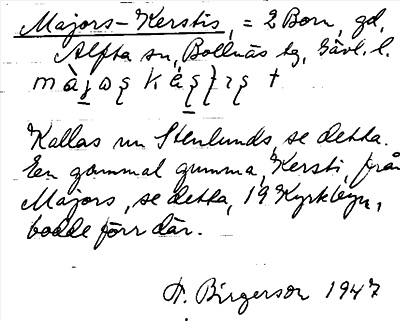 Majors-Kerstis, = 2 Born, gd,
Alfta sn, Bollnäs tg, Gävl. l.
Kallas nu Stenlunds, se detta.
En gammal gumma, Kersti, från
Majors, se detta, 19 Kyrkbyn,
bodde förr där.
F. Birgerson 1947